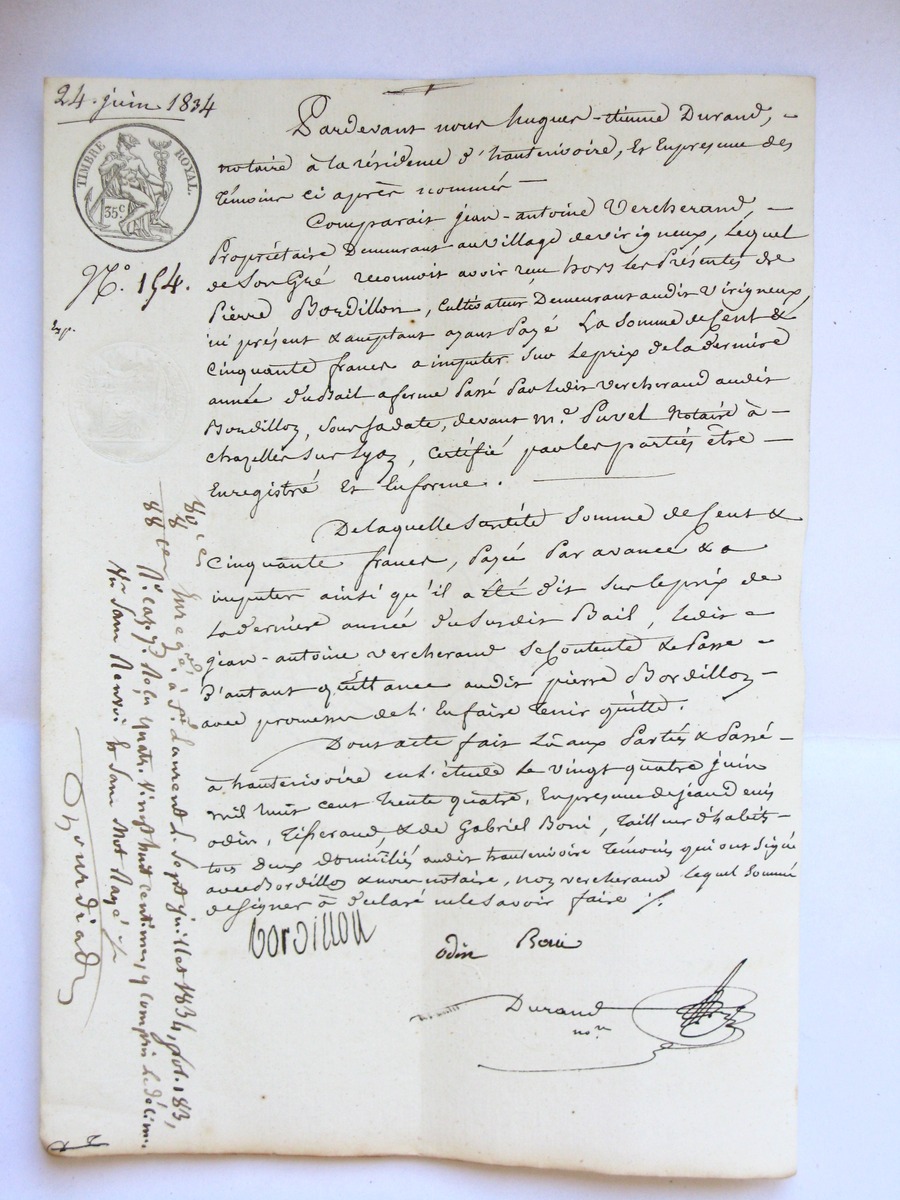 24. juin 1834
TIMBRE ROYAL.
35c
N.o 154.
Pardevant nous hugues-étienne Durand,
notaire à la résidence d'hauterivoire, et En présence des
témoins ci après nommés
Comparait jean-antoine Vercherand,
Propriétaire Demeurant au village de virigneux, Lequel
de Son Gré reconnoit avoir reçu hors les Présentes de
Pierre Bordillon, Cultivateur Demeurant audit Virigneux,
ici présent & acceptant ayant Payé La Somme de Cent &
Cinquante francs a imputer Sur Le prix de la dernière
année d'u Bail a ferme Passé Par Ledit vercherand audit
Bordillon, Sous Sa date, devant m.e Puvel Notaire à
chazelles Sur Lyon, Certifié par les parties être
Enregistré Et En forme.
De laquelle Sudite Somme de Cent &
Cinquante francs, Payée Par avance & a
imputer ainsi qu'il a été dit Sur Le prix de
La dernière année du Susdit Bail, Ledit
jean-antoine vercherand Se Contente & Passe
D'autant quittance audit pierre Bordillon
avec promesse de l'En faire tenir quitte.
Dont acte fait Lû aux Parties & Passé
à hauterivoire en L'étude Le vingt quatre juin
mil huit cent trente quatre, En présence de jean denis
odin, Tisserand, & de Gabriel Boni, Tailleur d'habits
tous Deux domiciliés audit hauterivoire Témoins qui ont Signé
avec Bordillon & nous notaire, non vercherand Lequel Sommé
de Signer à déclaré ne le Savoir faire ./.
bordillon
odin Boni
Durand
no.re
80 c es
8
88 cen
Enreg.é à S.t Laurent Le Sept juillet 1834, fol. 183,
R.o Reçu quatre vingt huit centimes, y compris Le décime.
Sans Renvoi & Sans Mot Rayé